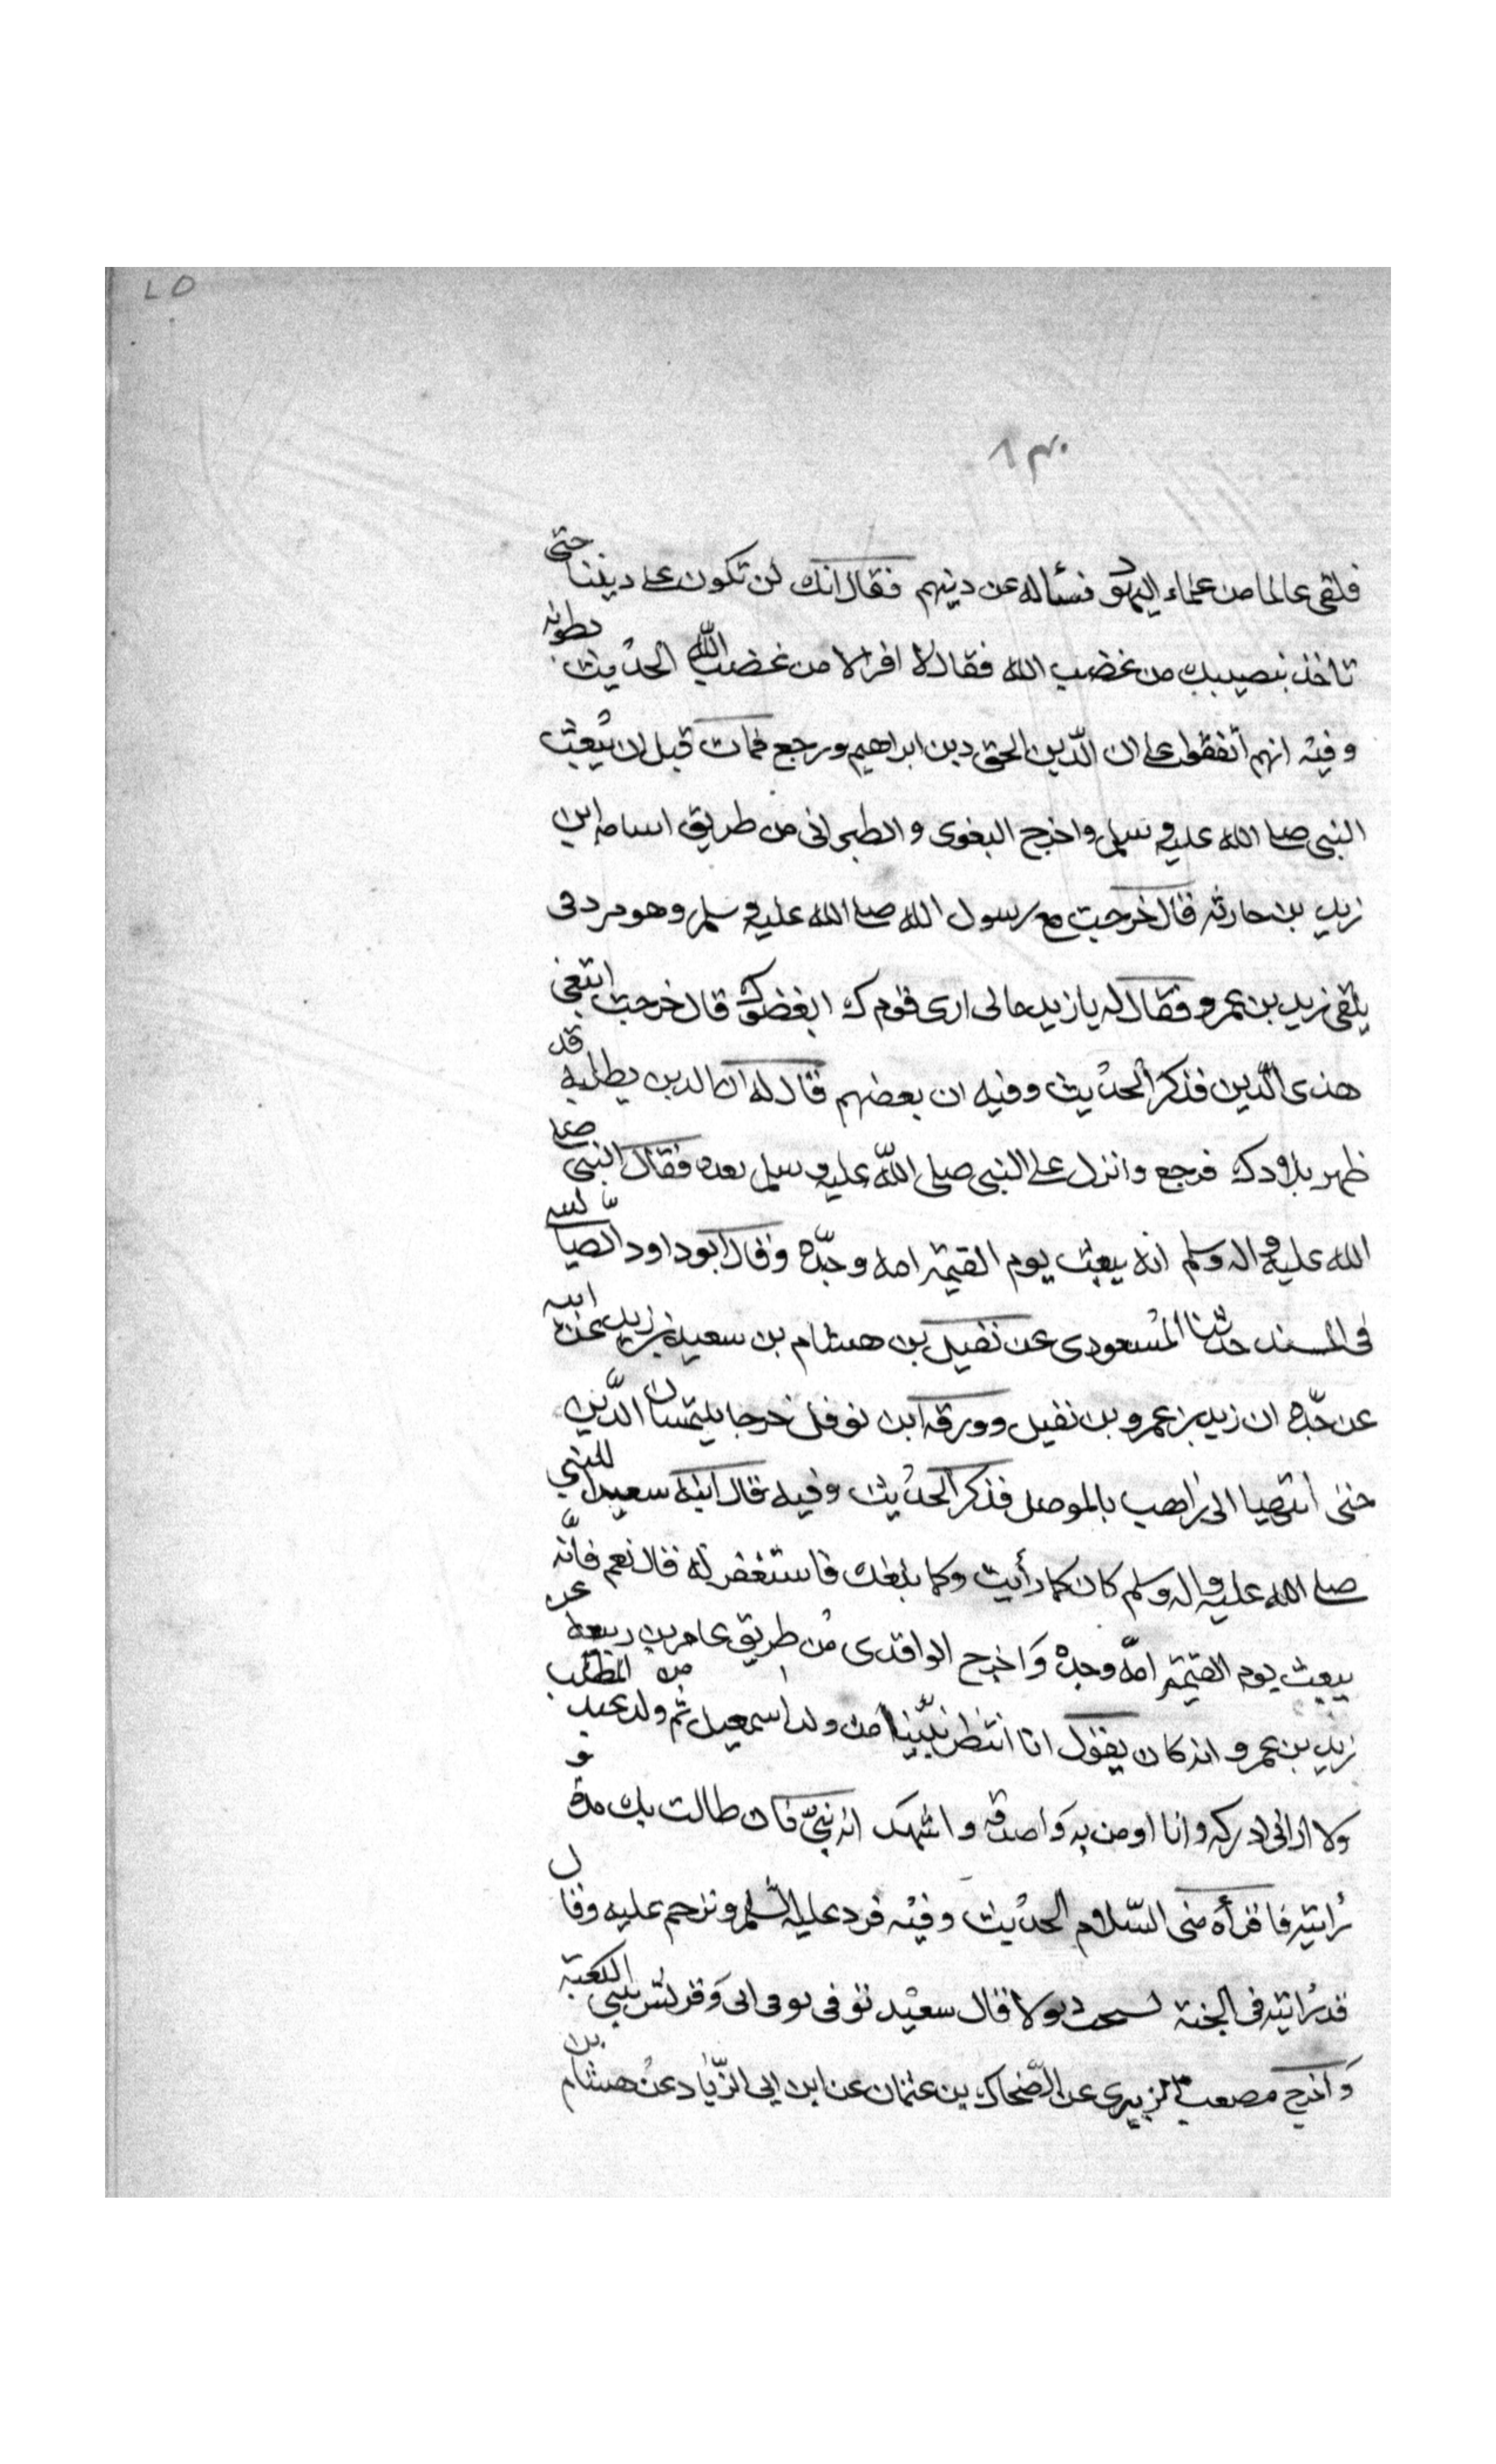 فلقى عالما من علماء اليهود فسأله عن دينهم فقال انك لن تكون على ديننا حتى
تاخذ بنصيبك من غضب الله فقال لا افر الا من غضب الله الحديث بطوله
وفيه انهم اتفقوا على ان الدّين الحق دين ابراهيم ورجع فمات قبل ان يُبعث
النبى صلى الله عليه وسلم واخرج البغوى والطبرانى من طريق اسامه ابن
زيد بن حارثه قال خرجت مع رسول الله صلى الله عليه وسلم وهو مردفى
يلقى زيد بن عمرو فقال له يا زيد مالى ارى قومك ابغضوك قال خرجت ابتغى
هذى الدّين فذكر الحديث وفيه ان بعضهم قال له ان الدين يطلبه قد
ظهر ببلادك فرجع وانزل على النبى صلى اللّه عليه وسلم بعده فقال النبى صلى
الله عليه واله وسلم انه يبعث يوم القيمة امه وحدّه وقال ابو داود الطيالسى
فى المسند حدثنا المسعودى عن نفيل بن هشام بن سعيد بن زيد عن ابيه
عن جدّه ان زيد بن عمرو بن نفيل وورقه ابن نوفل خرجا يلتمسان الدّين
حتى انتهيا الى راهب بالموصل فذكر الحديث وفيه قال ابنه سعيد للنبي
صلى الله عليه واله وسلم كان كما رأيت وكما بلغك فاستغفر له قال نعم فانّه
يبعث يوم القيمة امّه وحده وَاخرج الواقدى من طريق عامر بن ربيعه عن
زيد بن عمرو انه كان يقول انا انتظر نبيّنا من ولد اسمعيل ثم ولد عبد المطلب من
ولا ارانى ادركه وانا اومن به وَاصدقه واشهد انه نبىّ فان طالت بك مدة
رايته فاقرأه منى السّلام الحديث وفيه فرد عليه السّلم وترحم عليه وقال
قد رايته فى الجنة يسحب ديولا قال سعيد توفى وقريش تبني الكعبة
وَاخرج مصعب الزبيرى عن الضّحاك بن عثمان عن ابن ابى الزّناد عن هشام بن